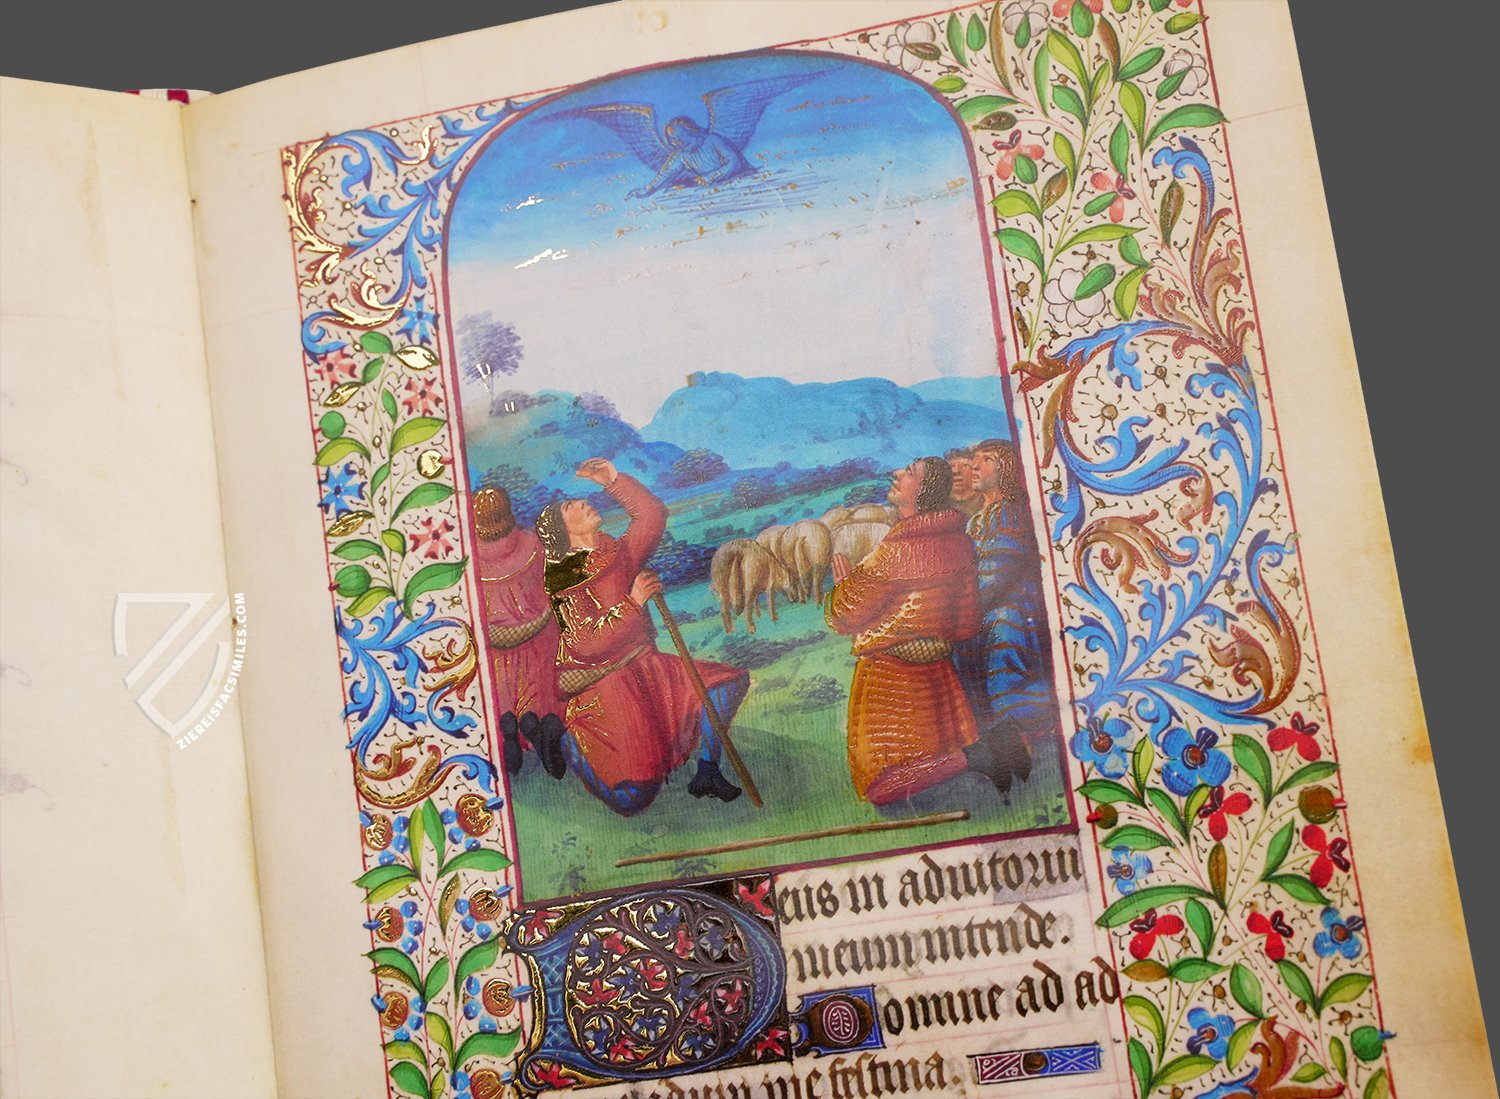 Deus in adiutoriu
meum intende.
Domine ad ad
iuuandum me festina.
ZIEREISFACSIMILES.COM